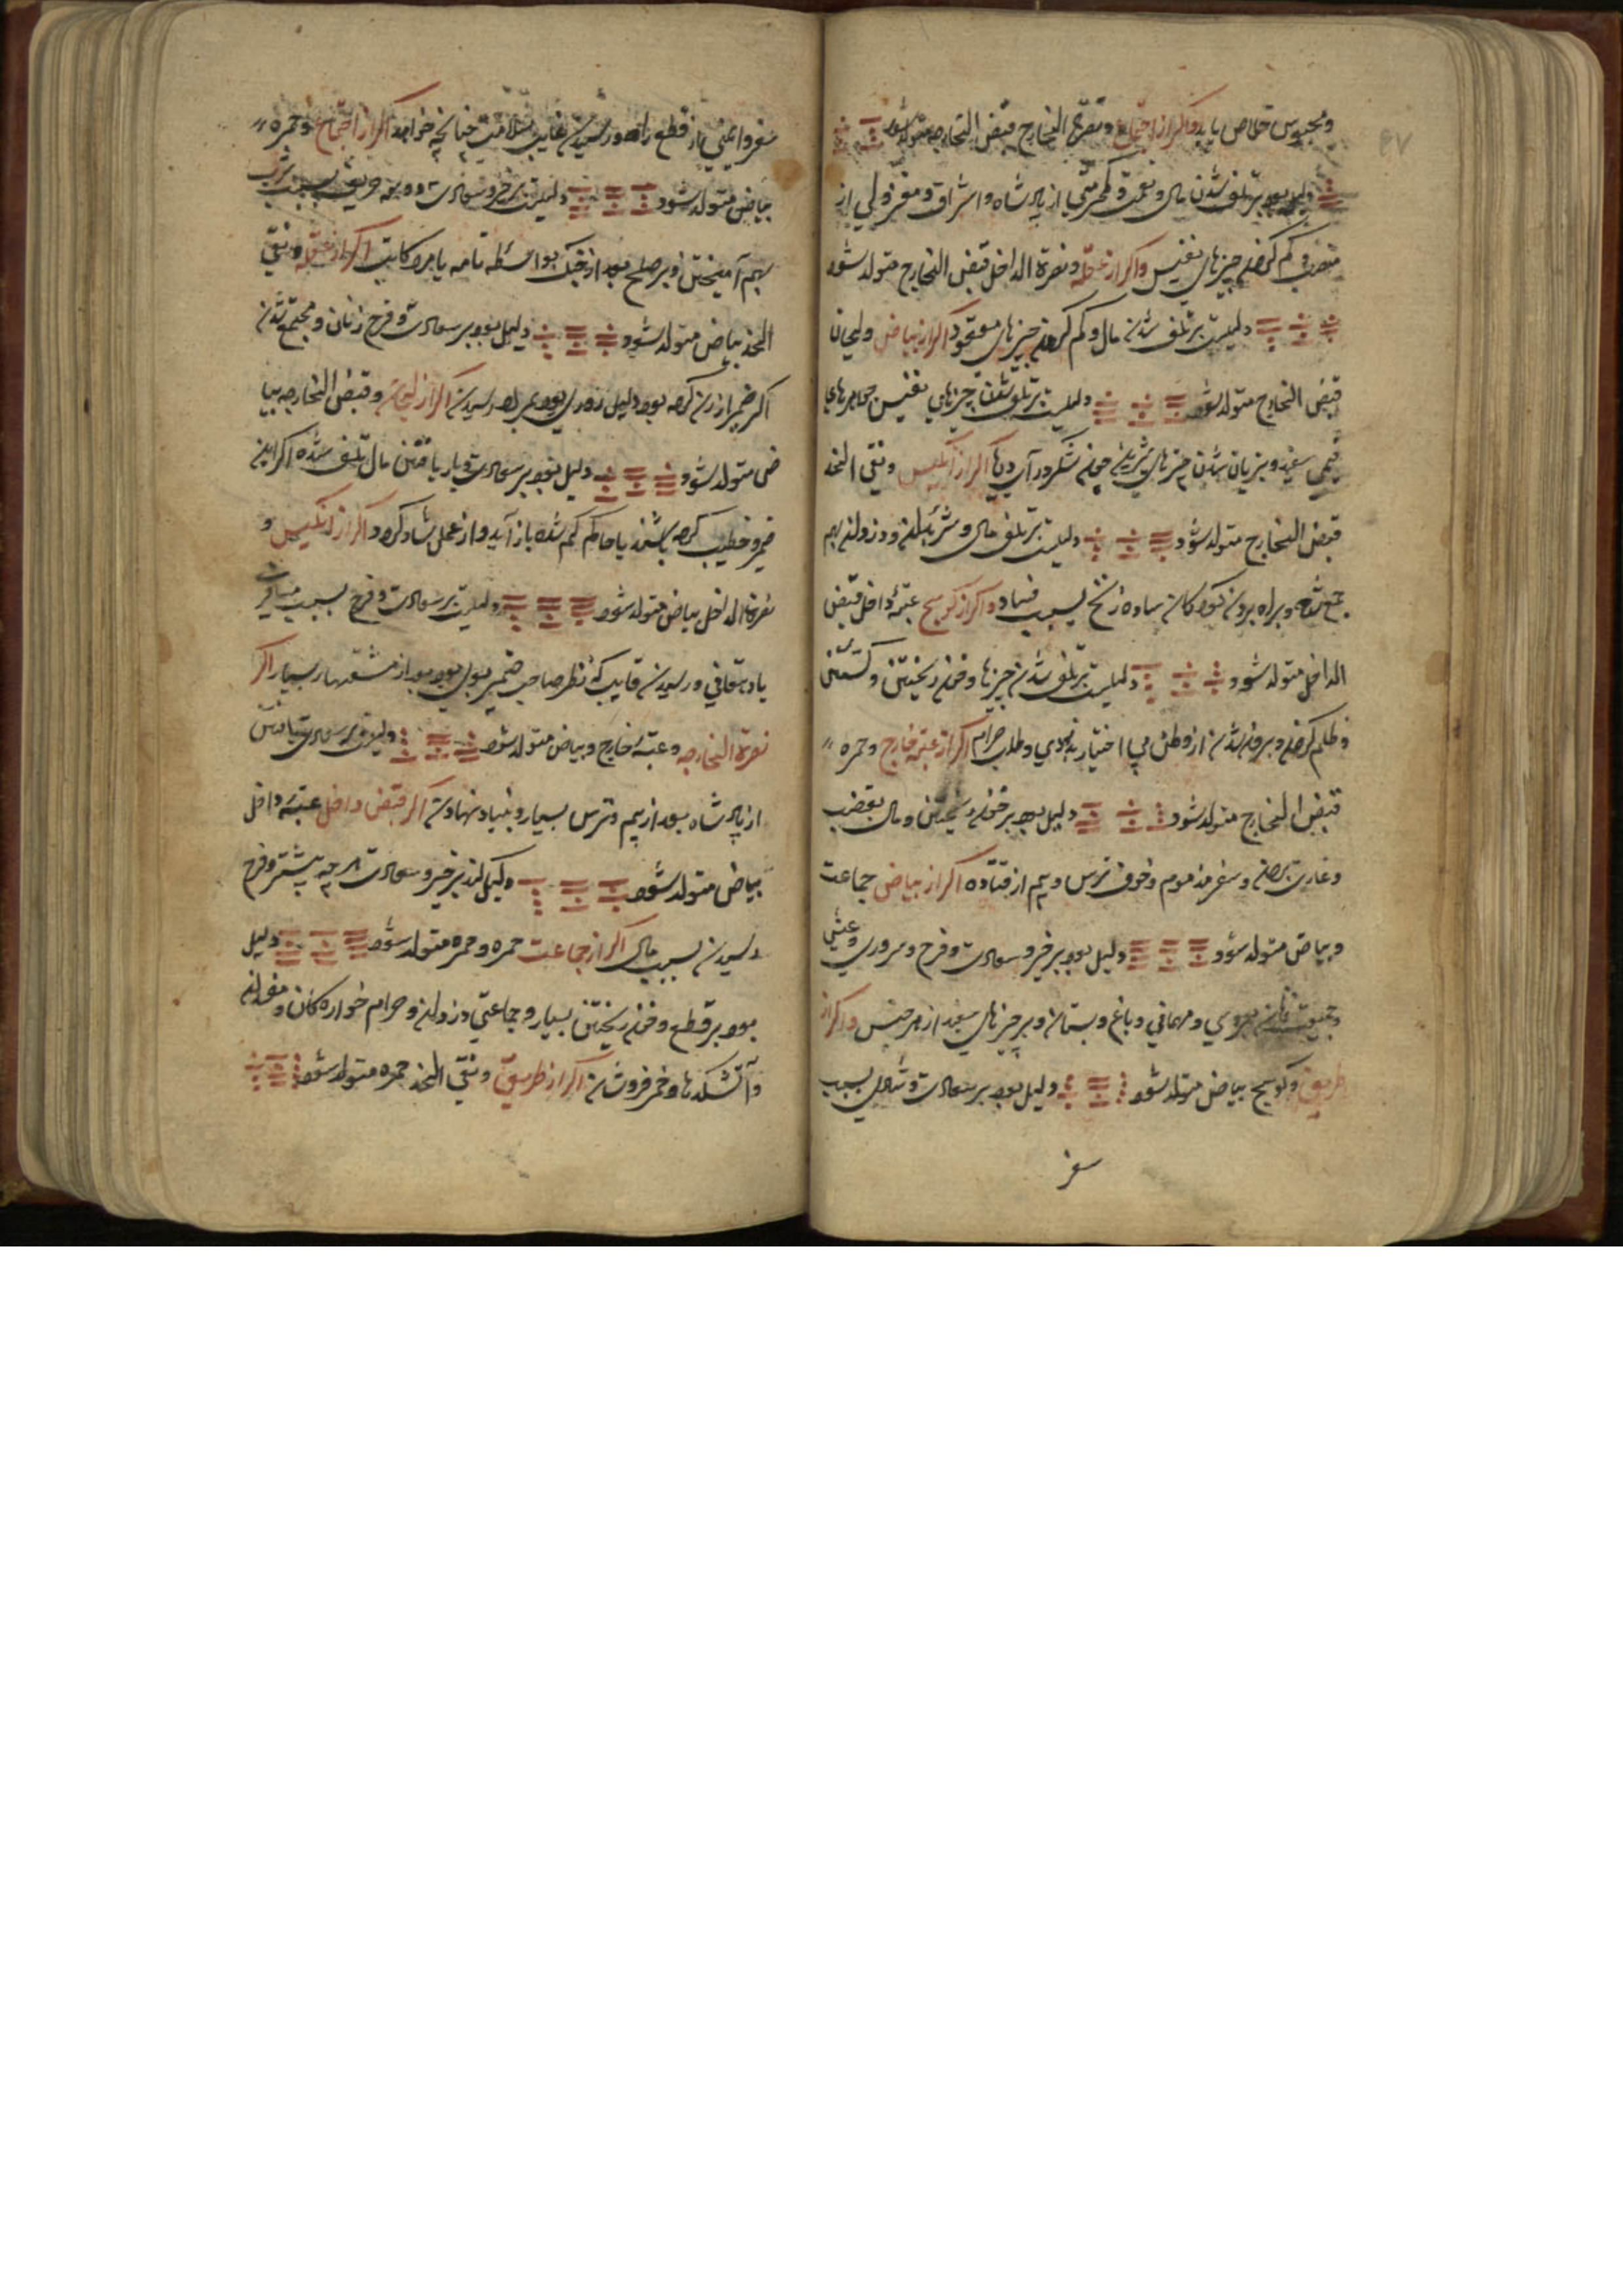 ومحبوس خلاص يابد واكر از اجتماع و نصرة الخارج قبض الخارجه متولد شود
دليل بود بر تلف شدن مال و نعمت و از پادشاه و اشراف و معزولي از
منصب و كم كردن چيزهاي نفيس واكر از عقله و نصرة الداخل قبض الخارج متولد شود
دليلست بر تلف شدن مال و كم كردن چيزهاي مفقود اكر از بياض و لحيان
قبض الخارج متولد شود دليلست بر تلف شدن چيزهاي نفيس جواهرهاي
قيمتي سفيد و بزيان شدن چيزهاي چون شكر و اكر از انكيس و نقي الخد
قبض الخارج متولد شود دليلست بر تلف مال و دزدان بهم
جمع شده و براه بردن كودكان ساده زنخ بسبب فساد و اكر از كوسج عتبه داخل قبض
الداخل متولد شود دليلست بر تلف شدن چيزها و خون ريختن و كشتن
و ظلم كردن و بيرون شدن از وطن بي اختيار و طلب حرام اكر از عتبه خارج و حمره
قبض الخارج متولد شود دليل بود بر خون ريختن و مال بغضب
و غارت بردن و سفر مذموم و خوف و ترس و بيم از فتادن اكر از بياض جماعت
و بياض متولد شود دليل بود بر خير و سعادت و فرح و سروري و عيش
و جمعيت زنان عروسي و مهماني و باغ و بستان و بر چيزهاي سفيد از هر جنس واكر از
طريق و كوسج بياض متولد شود دليل بود بر سعادت و شادي بسبب
سفر
سفر وايمني از قطع راه و رسيدن غايب بسلامت چنانچه خواهد اكر از اجتماع و حمره
بياض متولد شود دليلست بر خير و سعادت و دو بسبب
بهم آميختن و بر صلح بعد از جنك بواسطه نامه يا مرد كاتب اكر از عقله و نقي
الخد بياض متولد شود دليل بود بر سعادت و فرح زنان و مجتمع شدن
اكر ضمير از زن كرده بود دليل بود بمراد رسيدن اكر از لحيان و قبض الخارجه بيا
ض متولد شود دليل بود بر سعادت و باز يافتن مال تلف شده اكر اين
ضمير خطيب كرده باشد يا حاكم كم شده باز آيد و از عمل شاد كردد اكر از انكيس و
نصرة الداخل بياض متولد شود دليلست بر سعادت و فرح بسبب مسافرت
يا دهقاني و رسيدن غايب كه نظر صاحب ضمير بوي بود بعد از بسيار اكر
نصرة الخارجه و عتبه خارج و بياض متولد شود دليلست بر سعادت يافتن
از پادشاه بعد از بيم و ترس بسيار و بنياد نهادن اكر قبض داخل عتبه داخل
بياض متولد شود دليل كند بر خير و سعادت هر چه بيشتر و فرح
رسيدن بسبب مال اكر از جماعت حمره و حمره متولد شود دليل
بود بر قطع و خون ريختن بسيار و جماعتي دزدان و حرام خوارهكان و
و آتشكدها و خمر فروشان اكر از طريق و نقي الخد حمره متولد شود